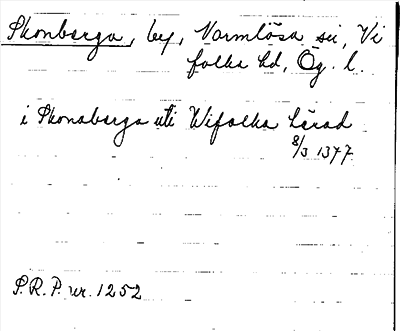 Skonberga, by, Varmlösa sn, Vi
folka hd, Ög. l.
i Skonaberga uti Wifolka härad
8/3 1377.
S.R.P. nr. 1252